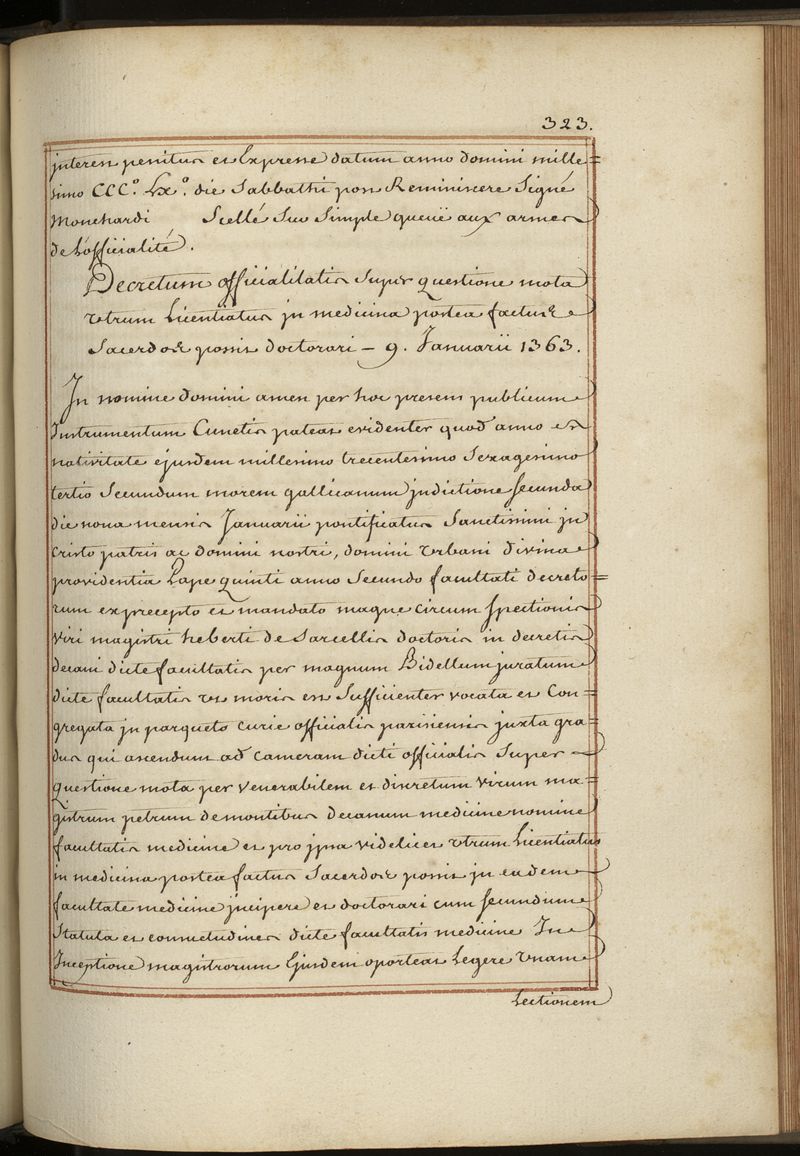 323.
interest penitus et Expresse datum anno domini mille=
simo CCC.º Lx.º die Sabbathi post Reminiscere Signé
Monchardi Scellé Sur Simple queuë aux armes
de l'officialité.
Decretum officialitatis Super questione mota
Utrum Licentiatus in medicina postea factus
Sacerdos possit doctorari – 9. Januarii 1363.
In nomine domini amen per hoc presens publicum
Instrumentum Cunctis pateat evidenter quod anno
nativitate ejusdem millesimo trecentesimo Sexagesimo
tertio Secundum morem gallicanum jndictione secunda
die nona mensis Januarii pontificatus Sanctissimi jn
Cristo patris ac domini nostri, domini Urbani divina
providentia Pape quinti anno Secundo facultati decreto=
rum ex precepto et mandato magne circum Spectionis
Viri magistri heberti de Sarcellis doctoris in decretis
decani dicte facultatis per magnum Bidellum juratum
dicte facultatis ut moris est Sufficienter vocata et Con=
gregata jn parqueto curie officialis parisiensis juxta gra=
dus qui ascendunt ad Cameram dicti officialis Super
questione mota per Venerabilem et discretum Virum ma=
gistrum petrum de montibus decanum medicine nomine
facultatis medicine et pro jpsa videlicet Utrum Licentiatus
in medicina postea factus Sacerdos possit jn eadem
facultate medicine jncipere et doctorari cum secundum
Statuta et consuetudines dicte facultatis medicine In
Inceptione magistrorum Ejusdem oporteat Legere Unam
Lectionem